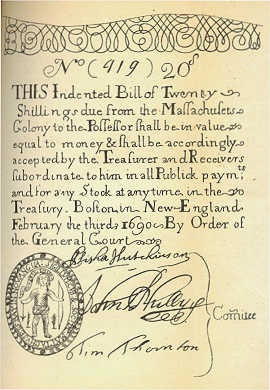 No (919) 20s
THIS Indented Bill of Twenty
Shillings due from the Massachusets
Colony to the Possessor shall be in value
equal to money & shall be accordingly
accepted by the Treasurer and Receivers
subordinate to him in all Publick paymts
and for any Stock at any time in the
Treasury. Boston in New-England
February the third 1690. By Order of
the General Court
Elisha Hutchinson
John Walley
Comitee
Tim Thornton